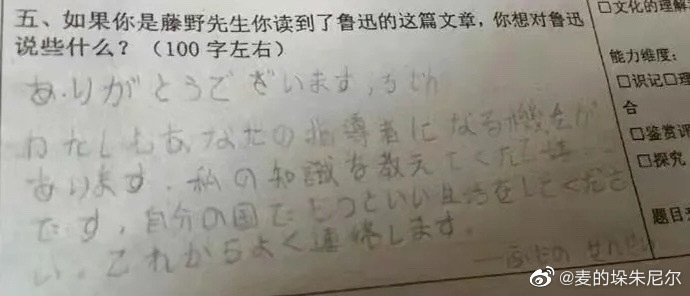 五、如果你是藤野先生你读到了鲁迅的这篇文章，你想对鲁迅
说些什么？（100字左右）
ありがとうございます，
わたしもあなたの指導者になる機会が
あります．私の知識を教えてくだ
です，自分の国でもっといい生活をしてくださ
い。これからよく連絡します。
——ふじの せんせい
□文化的理解
能力维度：
□识记□理
合
□鉴赏评
□探究
题目
@麦的垛朱尼尔